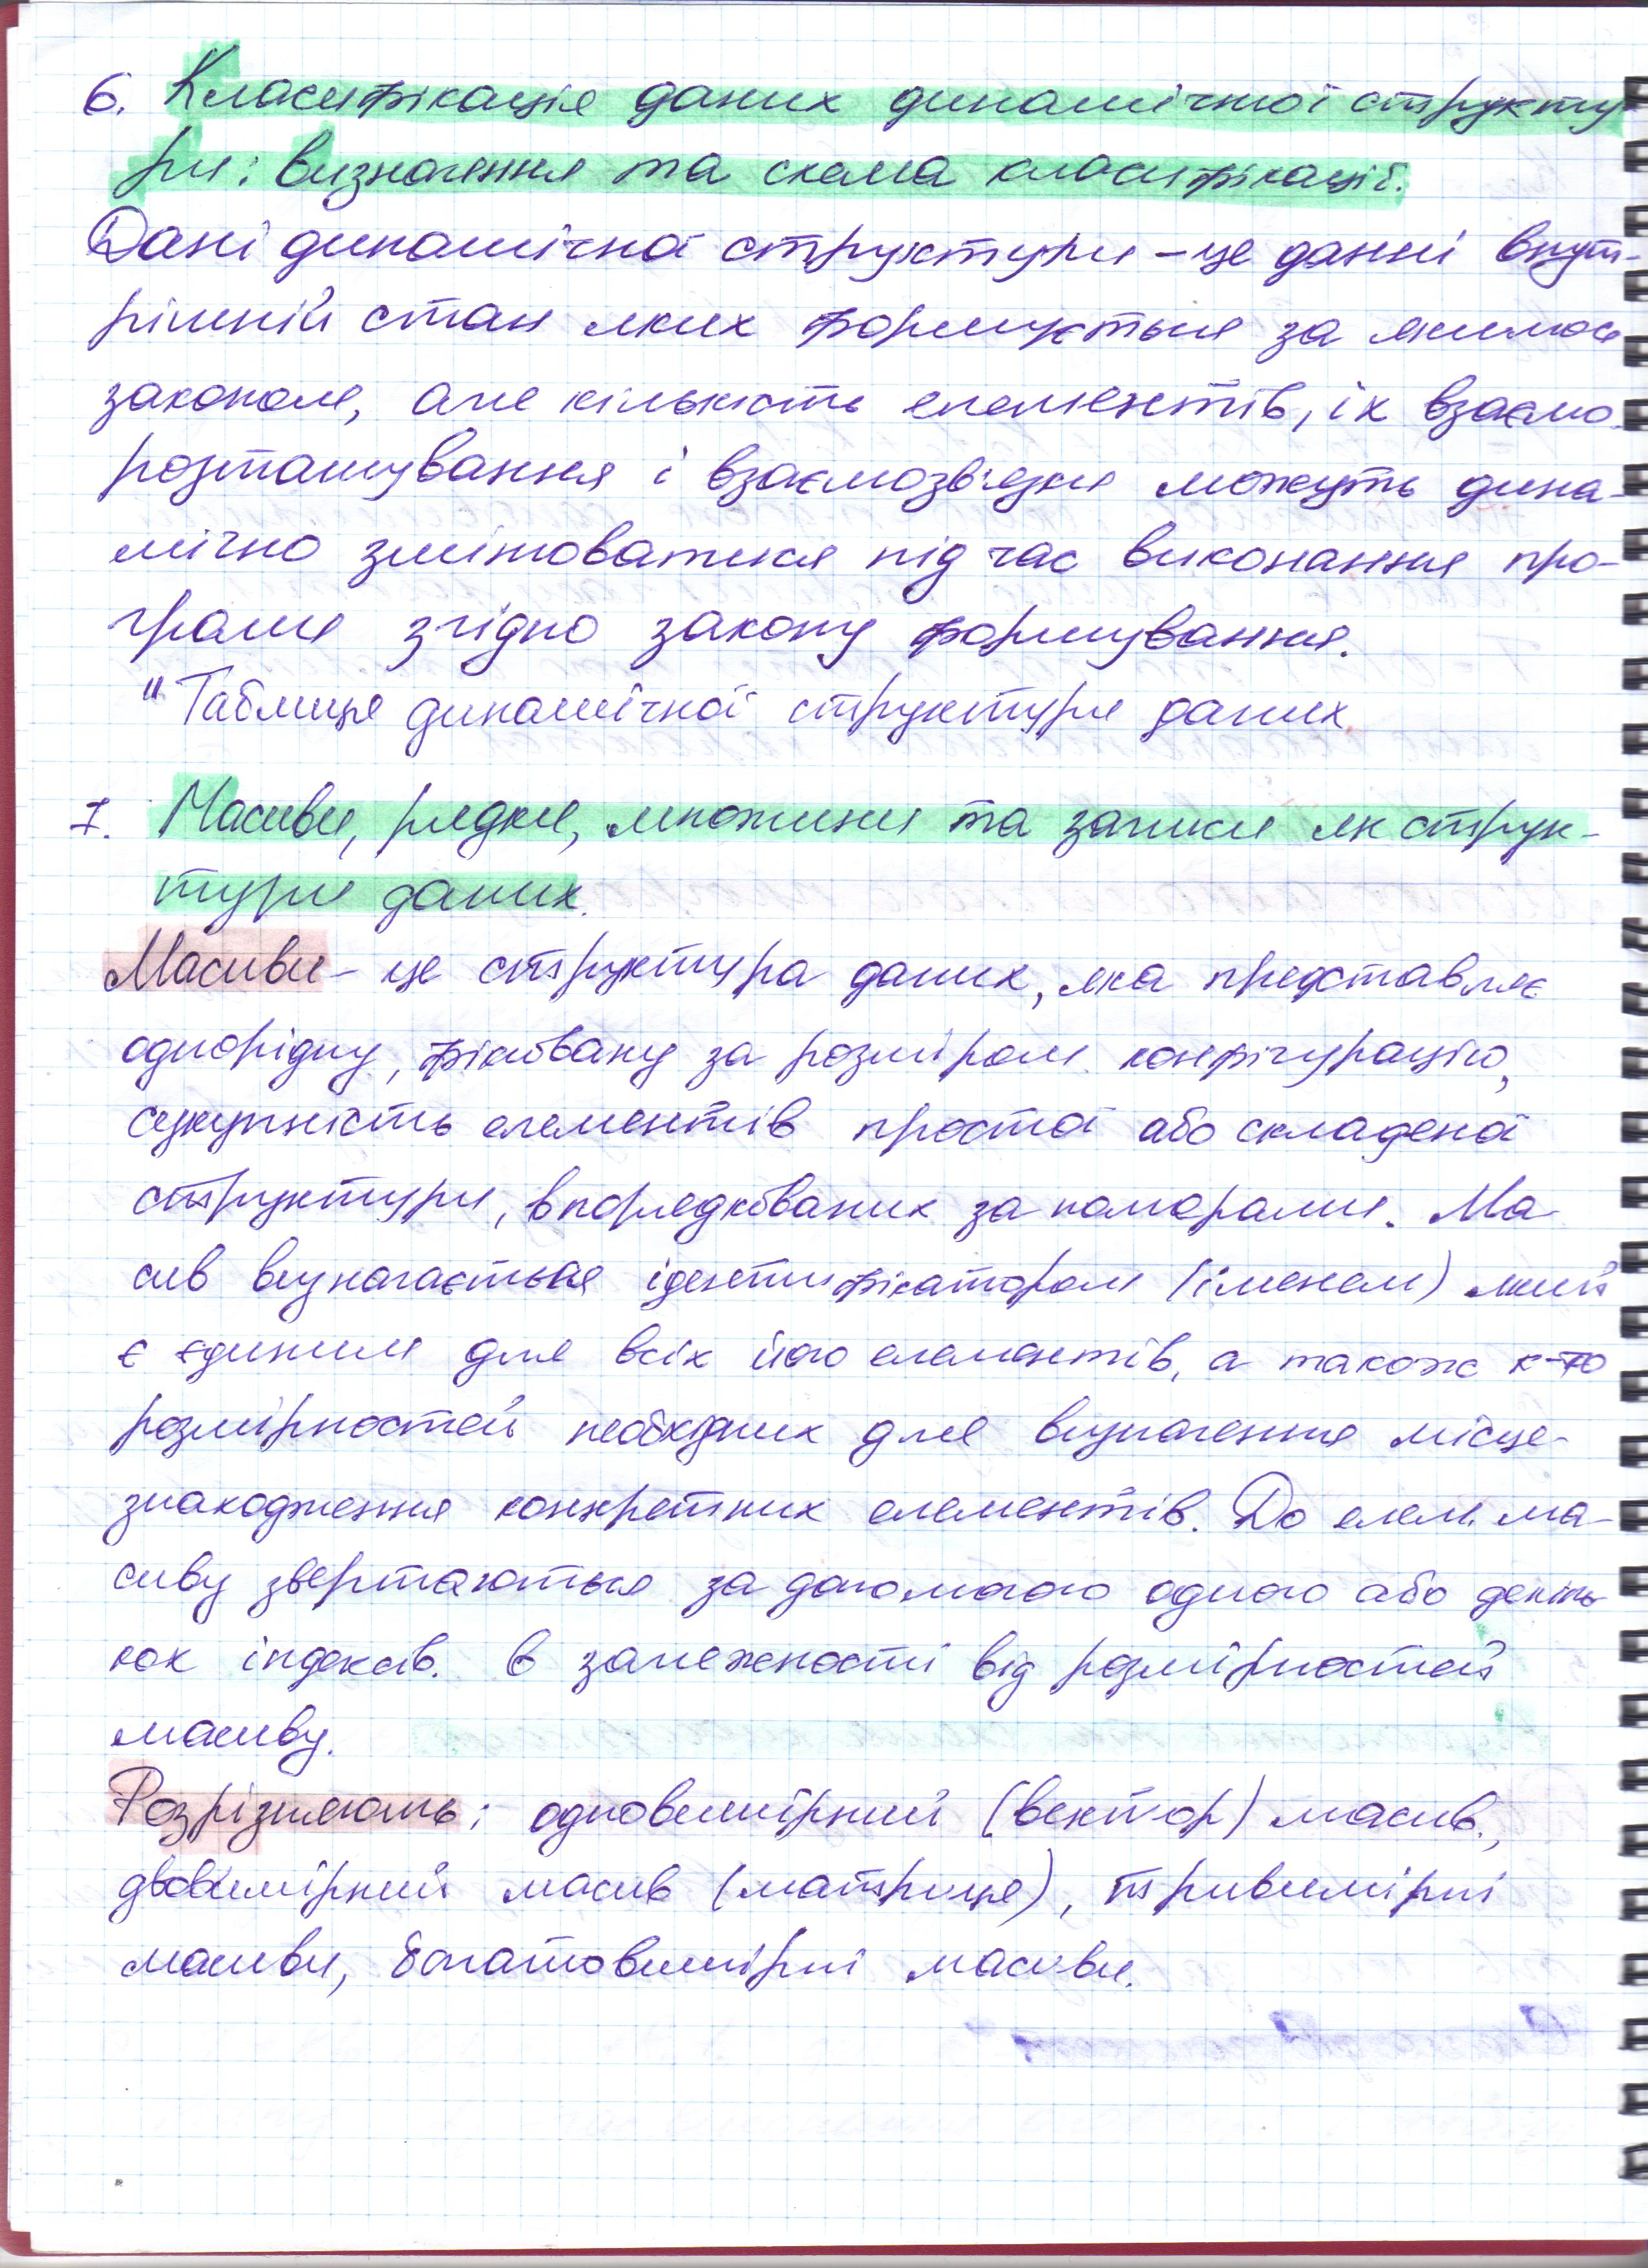 6. Класифікація даних динамічної структу
ри: визначення та схема класифікації.
Дані динамічної структури – це данні внут-
рішній стан яких формується за якимось
законом, але кількість елементів, їх взаємо
розташування і взаємозв'язки можуть дина-
мічно змінюватися під час виконання про-
грами згідно закону формування.
"Таблиця динамічної структури даних
7. Масиви, рядки, множини та записи як струк-
тури даних.
Масиви – це структура даних, яка представляє
однорідну, фіксовану за розміром конфігурацію,
сукупність елементів простої або складеної
структури, впорядкованих за номерами. Ма
сив визначається ідентифікатором (іменем) який
є єдиним для всіх його елементів, а також к-тю
розмірностей необхідних для визначення місце-
знаходження конкретних елементів. До елем. ма-
сиву звертаються за допомогою одного або декіль
кох індексів. в залежності від розмірностей
масиву.
Розрізняють: одновимірний (вектор) масив.,
двовимірний масив (матриця), тривимірні
масиви, багатовимірні масиви.